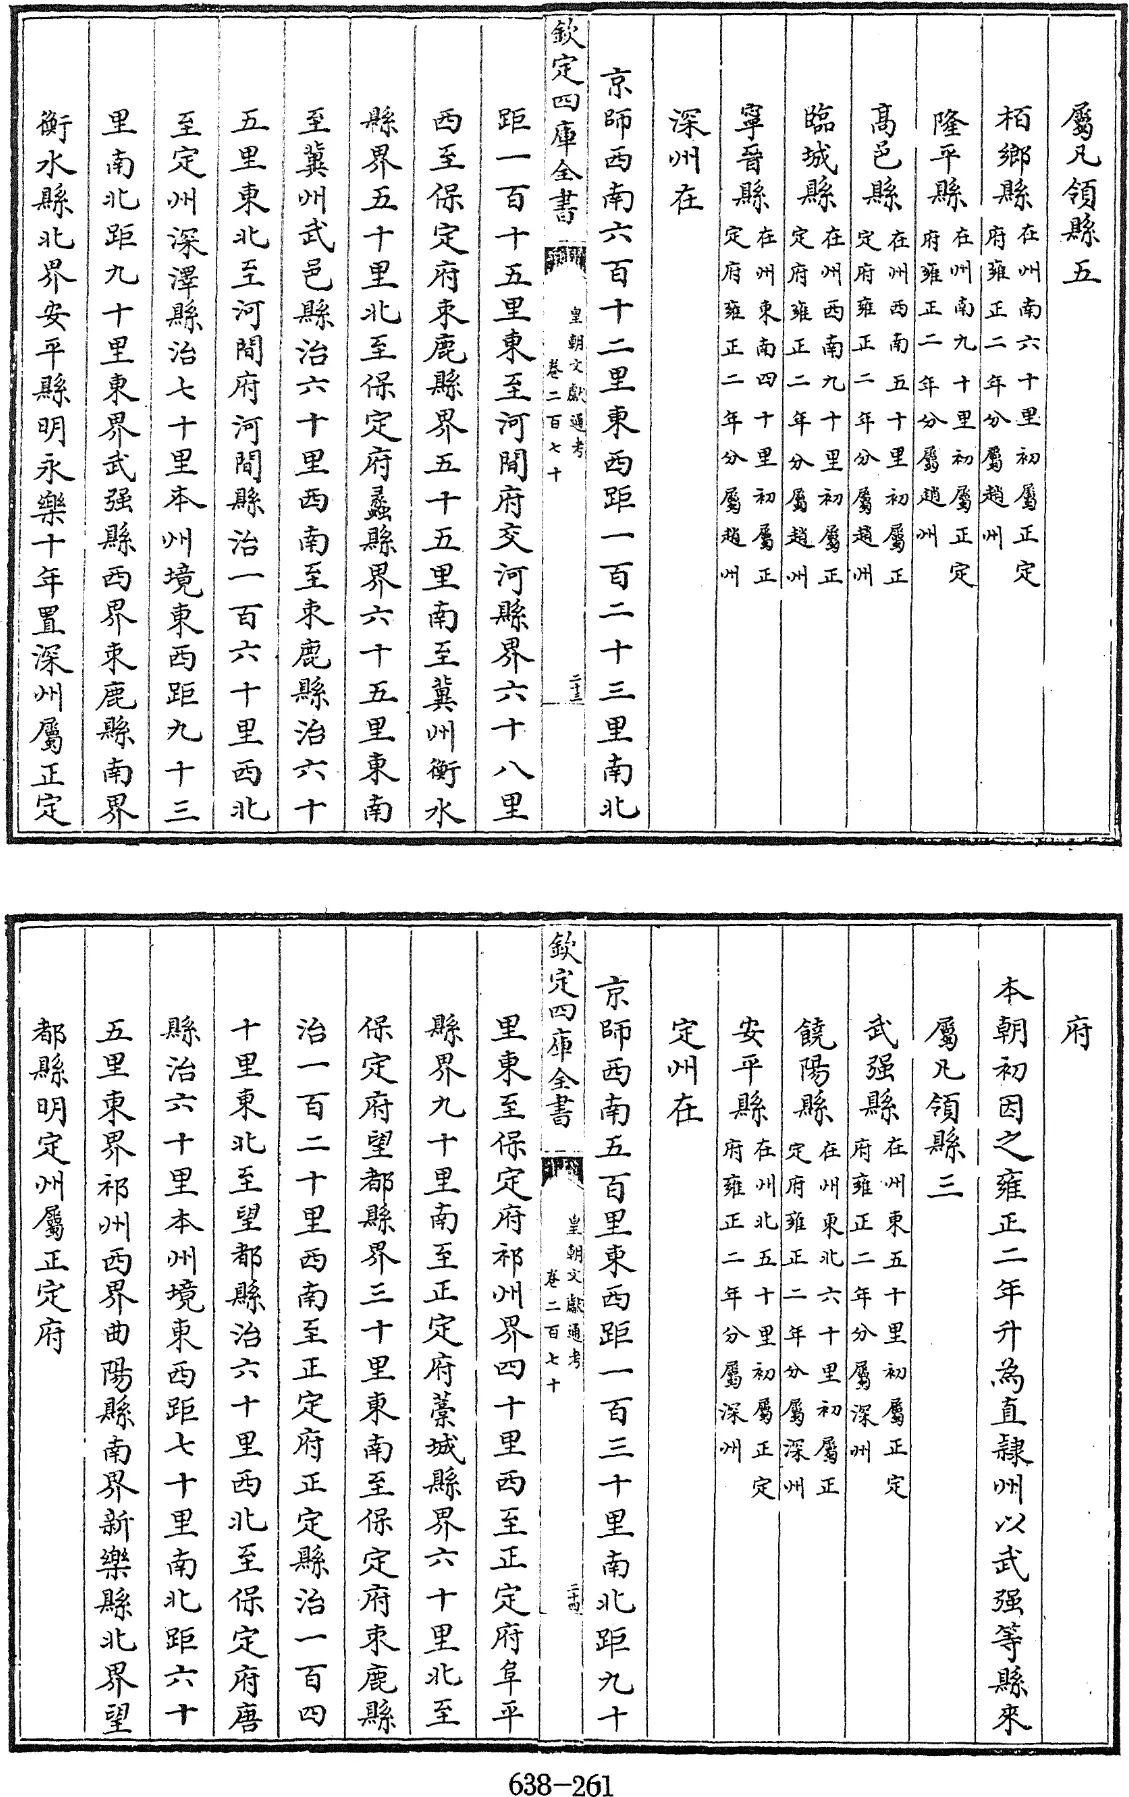 屬凡領縣五
柏鄉縣在州南六十里初屬正定
府雍正二年分屬趙州
隆平縣在州南九十里初屬正定
府雍正二年分屬趙州
高邑縣在州西南五十里初屬正
定府雍正二年分屬趙州
臨城縣在州西南九十里初屬正
定府雍正二年分屬趙州
寧晉縣在州東南四十里初屬正
定府雍正二年分屬趙州
深州在
京師西南六百十二里東西距一百二十三里南北
欽定四庫全書
皇朝文獻通考
卷二百七十
二十三
距一百十五里東至河間府交河縣界六十八里
西至保定府束鹿縣界五十五里南至冀州衡水
縣界五十里北至保定府蠡縣界六十五里東南
至冀州武邑縣治六十里西南至束鹿縣治六十
五里東北至河間府河間縣治一百六十里西北
至定州深澤縣治七十里本州境東西距九十三
里南北距九十里東界武强縣西界束鹿縣南界
衡水縣北界安平縣明永樂十年置深州屬正定
府
本朝初因之雍正二年升為直隷州以武强等縣來
屬凡領縣三
武强縣在州東五十里初屬正定
府雍正二年分屬深州
饒陽縣在州東北六十里初屬正
定府雍正二年分屬深州
安平縣在州北五十里初屬正定
府雍正二年分屬深州
定州在
京師西南五百里東西距一百三十里南北距九十
欽定四庫全書
皇朝文獻通考
卷二百七十
二十四
里東至保定府祁州界四十里西至正定府阜平
縣界九十里南至正定府藁城縣界六十里北至
保定府望都縣界三十里東南至保定府束鹿縣
治一百二十里西南至正定府正定縣治一百四
十里東北至望都縣治六十里西北至保定府唐
縣治六十里本州境東西距七十里南北距六十
五里東界祁州西界曲陽縣南界新樂縣北界望
都縣明定州屬正定府
638-261